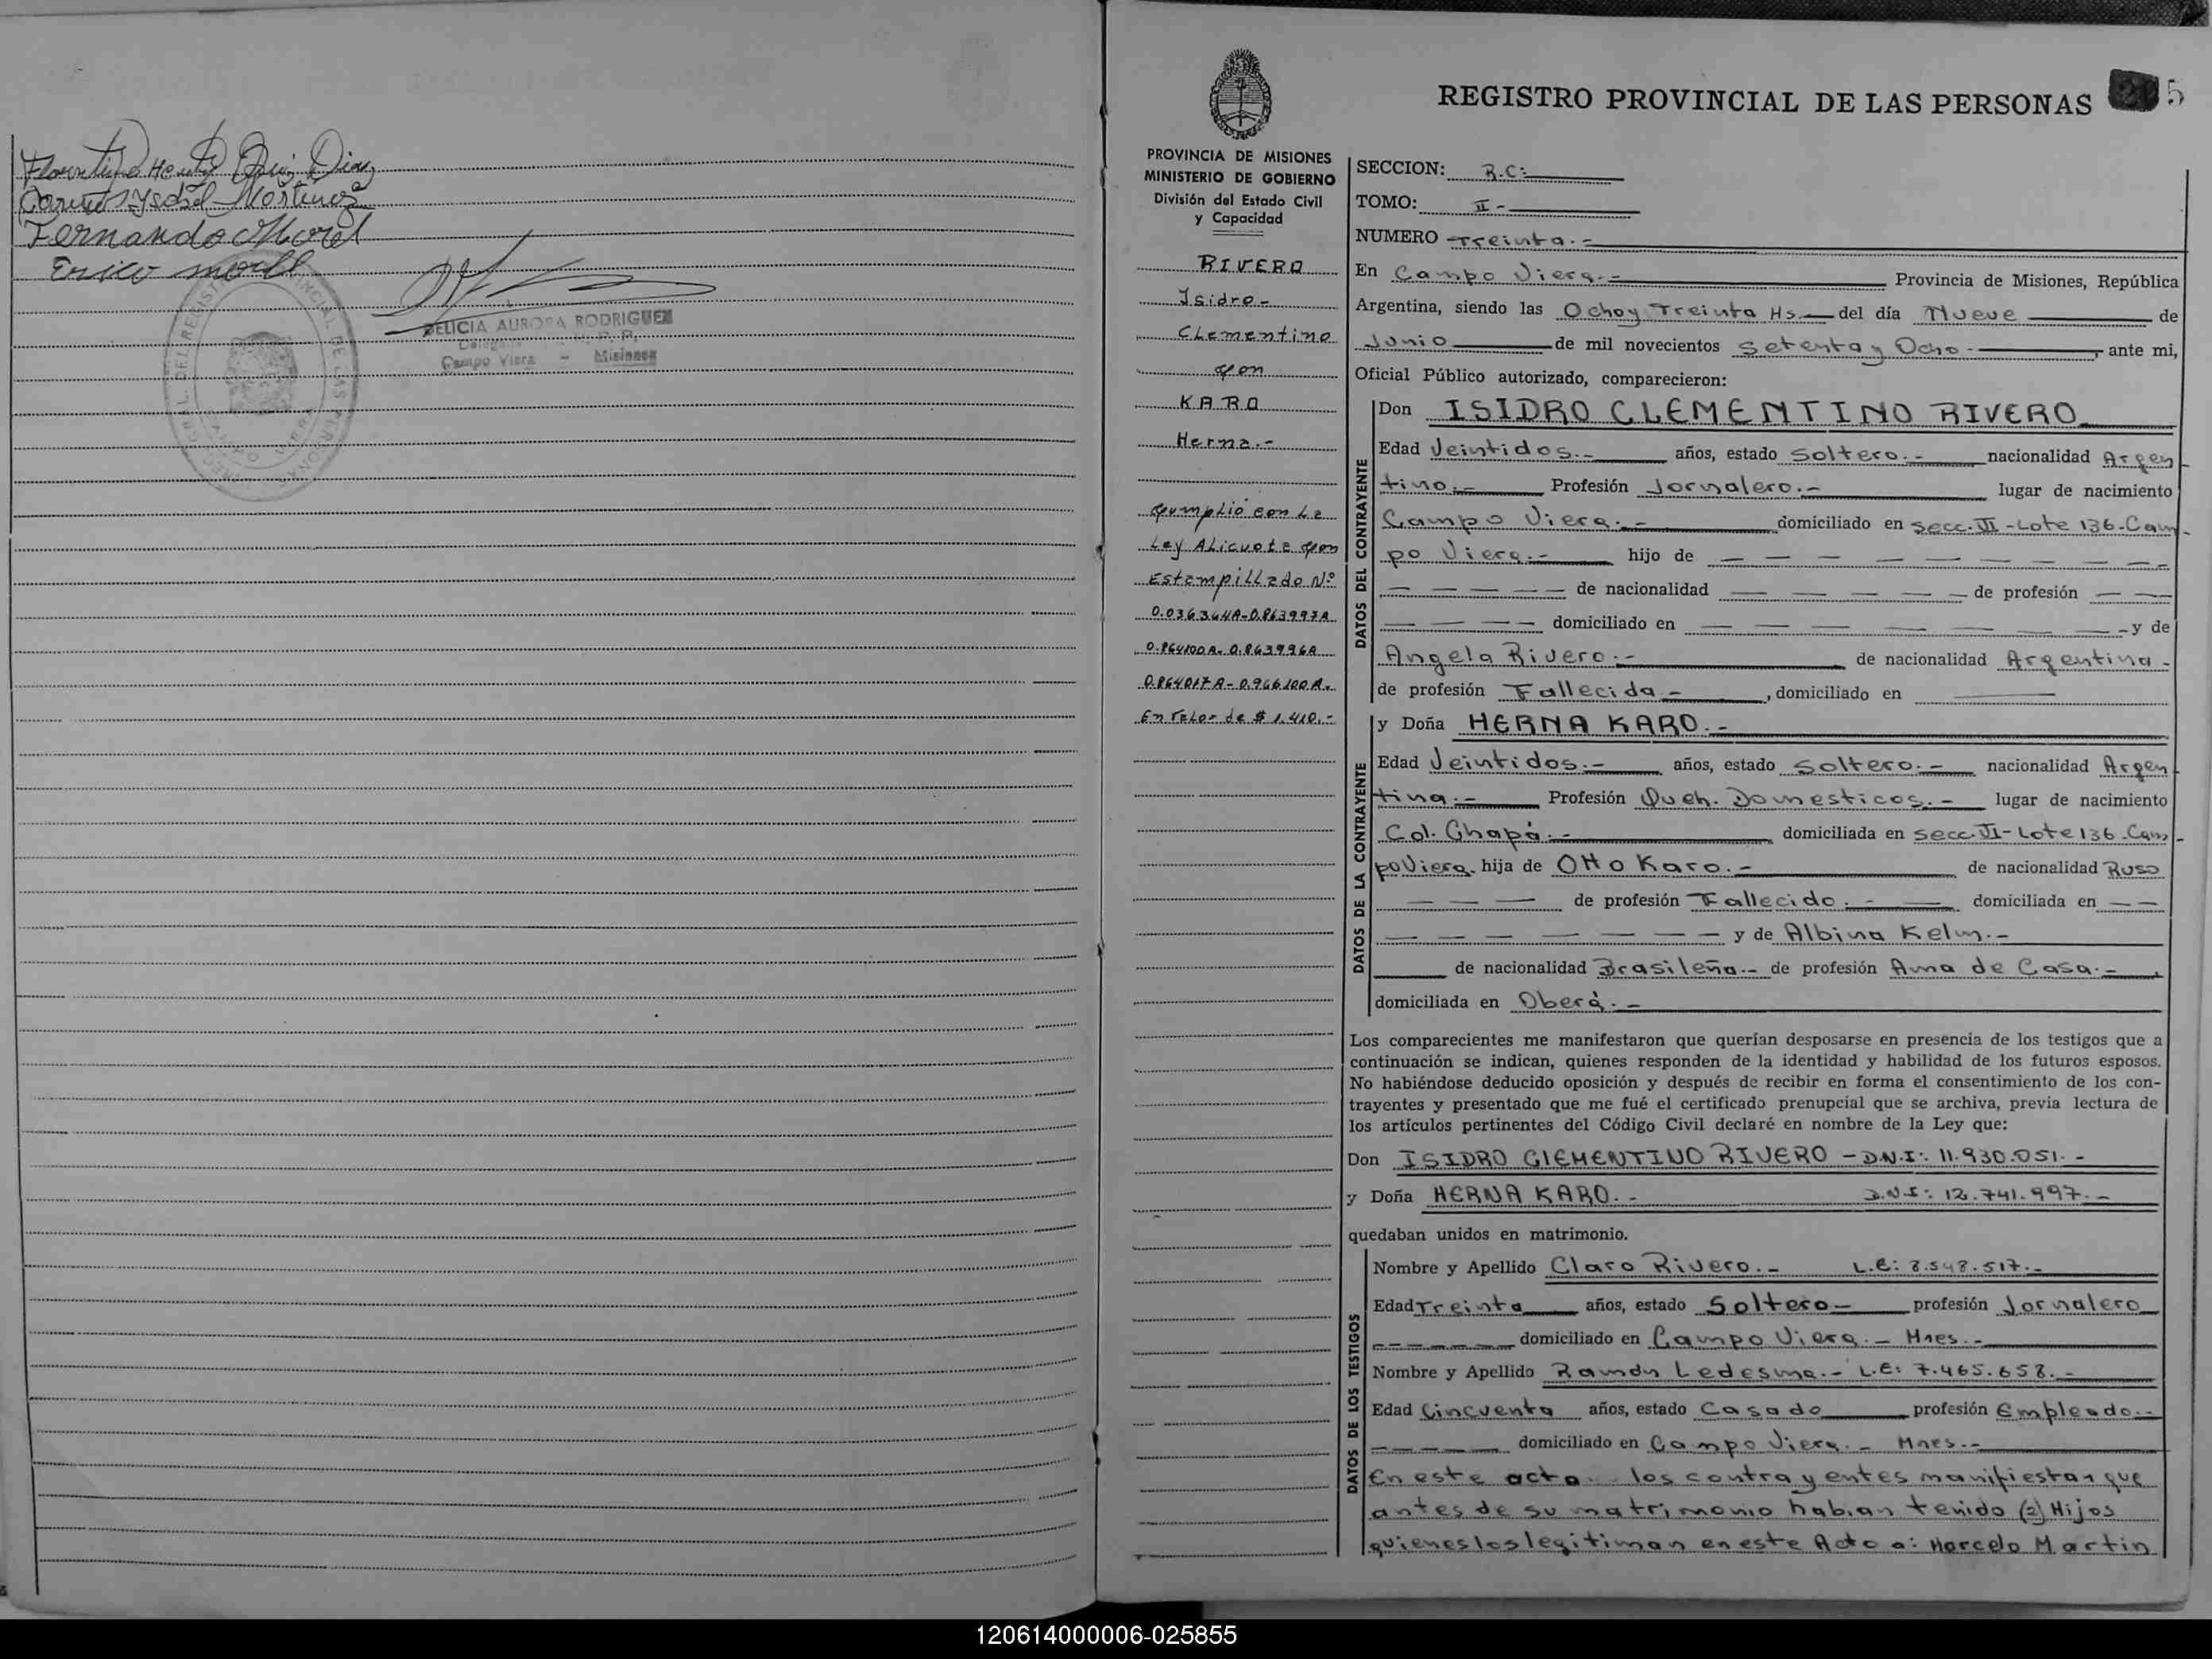 Carmen Ysabel Martinez
Fernando Morel
Erico morel
DELICIA AURORA RODRIGUEZ
Campo Viera - Misiones
REGISTRO PROVINCIAL DE LAS PERSONAS
5
PROVINCIA DE MISIONES
MINISTERIO DE GOBIERNO
División del Estado Civil
y Capacidad
RIVERO
Isidro-
Clementino
con
KARO
Herna.-
Cumplió con La
Ley Alicuota con
Estampillado Nº
0.036364A-0.863997A
0.864100A-0.863996A
0.864017A-0.966100A.
En Valor de $ 1.410.-
SECCION: R.C:
TOMO: II-
NUMERO Treinta.-
En Campo Viera.- Provincia de Misiones, República
Argentina, siendo las Ocho y Treinta Hs. del día Nueve de
Junio de mil novecientos Setenta y Ocho.-, ante mi,
Oficial Público autorizado, comparecieron:
DATOS DEL CONTRAYENTE
Don ISIDRO CLEMENTINO RIVERO
Edad Veintidos.- años, estado Soltero.- nacionalidad Argen
tino.- Profesión Jornalero.- lugar de nacimiento
Campo Viera.- domiciliado en Secc. VI-Lote 136-Cam-
po Viera.- hijo de — — — — — — — —
— — — — — de nacionalidad — — — — — de profesión — —
— — — — domiciliado en — — — — — — — - y de
Angela Rivero.- de nacionalidad Argentina-
de profesión Fallecida.-, domiciliado en ———
DATOS DE LA CONTRAYENTE
y Doña HERNA KARO.-
Edad Veintidos.- años, estado Soltero.- nacionalidad Argen
tina.- Profesión Queh. Domesticos.- lugar de nacimiento
Col. Chapá.- domiciliada en Secc. VI-Lote 136-Cam-
po Viera. hija de Otto Karo.- de nacionalidad Ruso
— — — de profesión Fallecido.- — domiciliada en — —
— — — — — — — — y de Albina Kelm.-
de nacionalidad Brasileña.- de profesión Ama de Casa.-,
domiciliada en Oberá.-
Los comparecientes me manifestaron que querían desposarse en presencia de los testigos que a
continuación se indican, quienes responden de la identidad y habilidad de los futuros esposos.
No habiéndose deducido oposición y después de recibir en forma el consentimiento de los con-
trayentes y presentado que me fué el certificado prenupcial que se archiva, previa lectura de
los artículos pertinentes del Código Civil declaré en nombre de la Ley que:
Don ISIDRO CLEMENTINO RIVERO - D.N.I: 11.930.051.-
y Doña HERNA KARO.- D.N.I: 12.741.997.-
quedaban unidos en matrimonio.
DATOS DE LOS TESTIGOS
Nombre y Apellido Claro Rivero.- L.E: 8.548.517.-
Edad Treinta años, estado Soltero- profesión Jornalero
— — — — — — domiciliado en Campo Viera.- Mnes.-
Nombre y Apellido Ramón Ledesma.- L.E: 7.465.658.-
Edad Cincuenta años, estado Casado profesión Empleado.-
— — — — — domiciliado en Campo Viera.- Mnes.-
En este acto los contrayentes manifiestan que
antes de su matrimonio habian tenido (2) Hijos
quienes los legitiman en este Acto a: Marcelo Martin
120614000006-025855